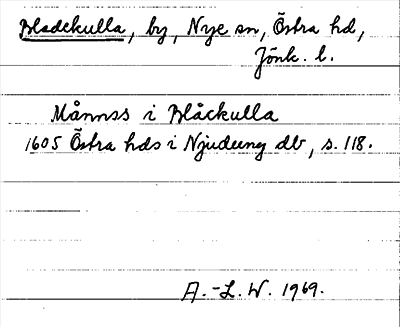 Bladckulla, by, Nye sn, Östra hd,
Jönk. l.
Månnss i Blåckulla
1605 Östra hds i Njudung db, s. 118.
A.-L. W. 1969.